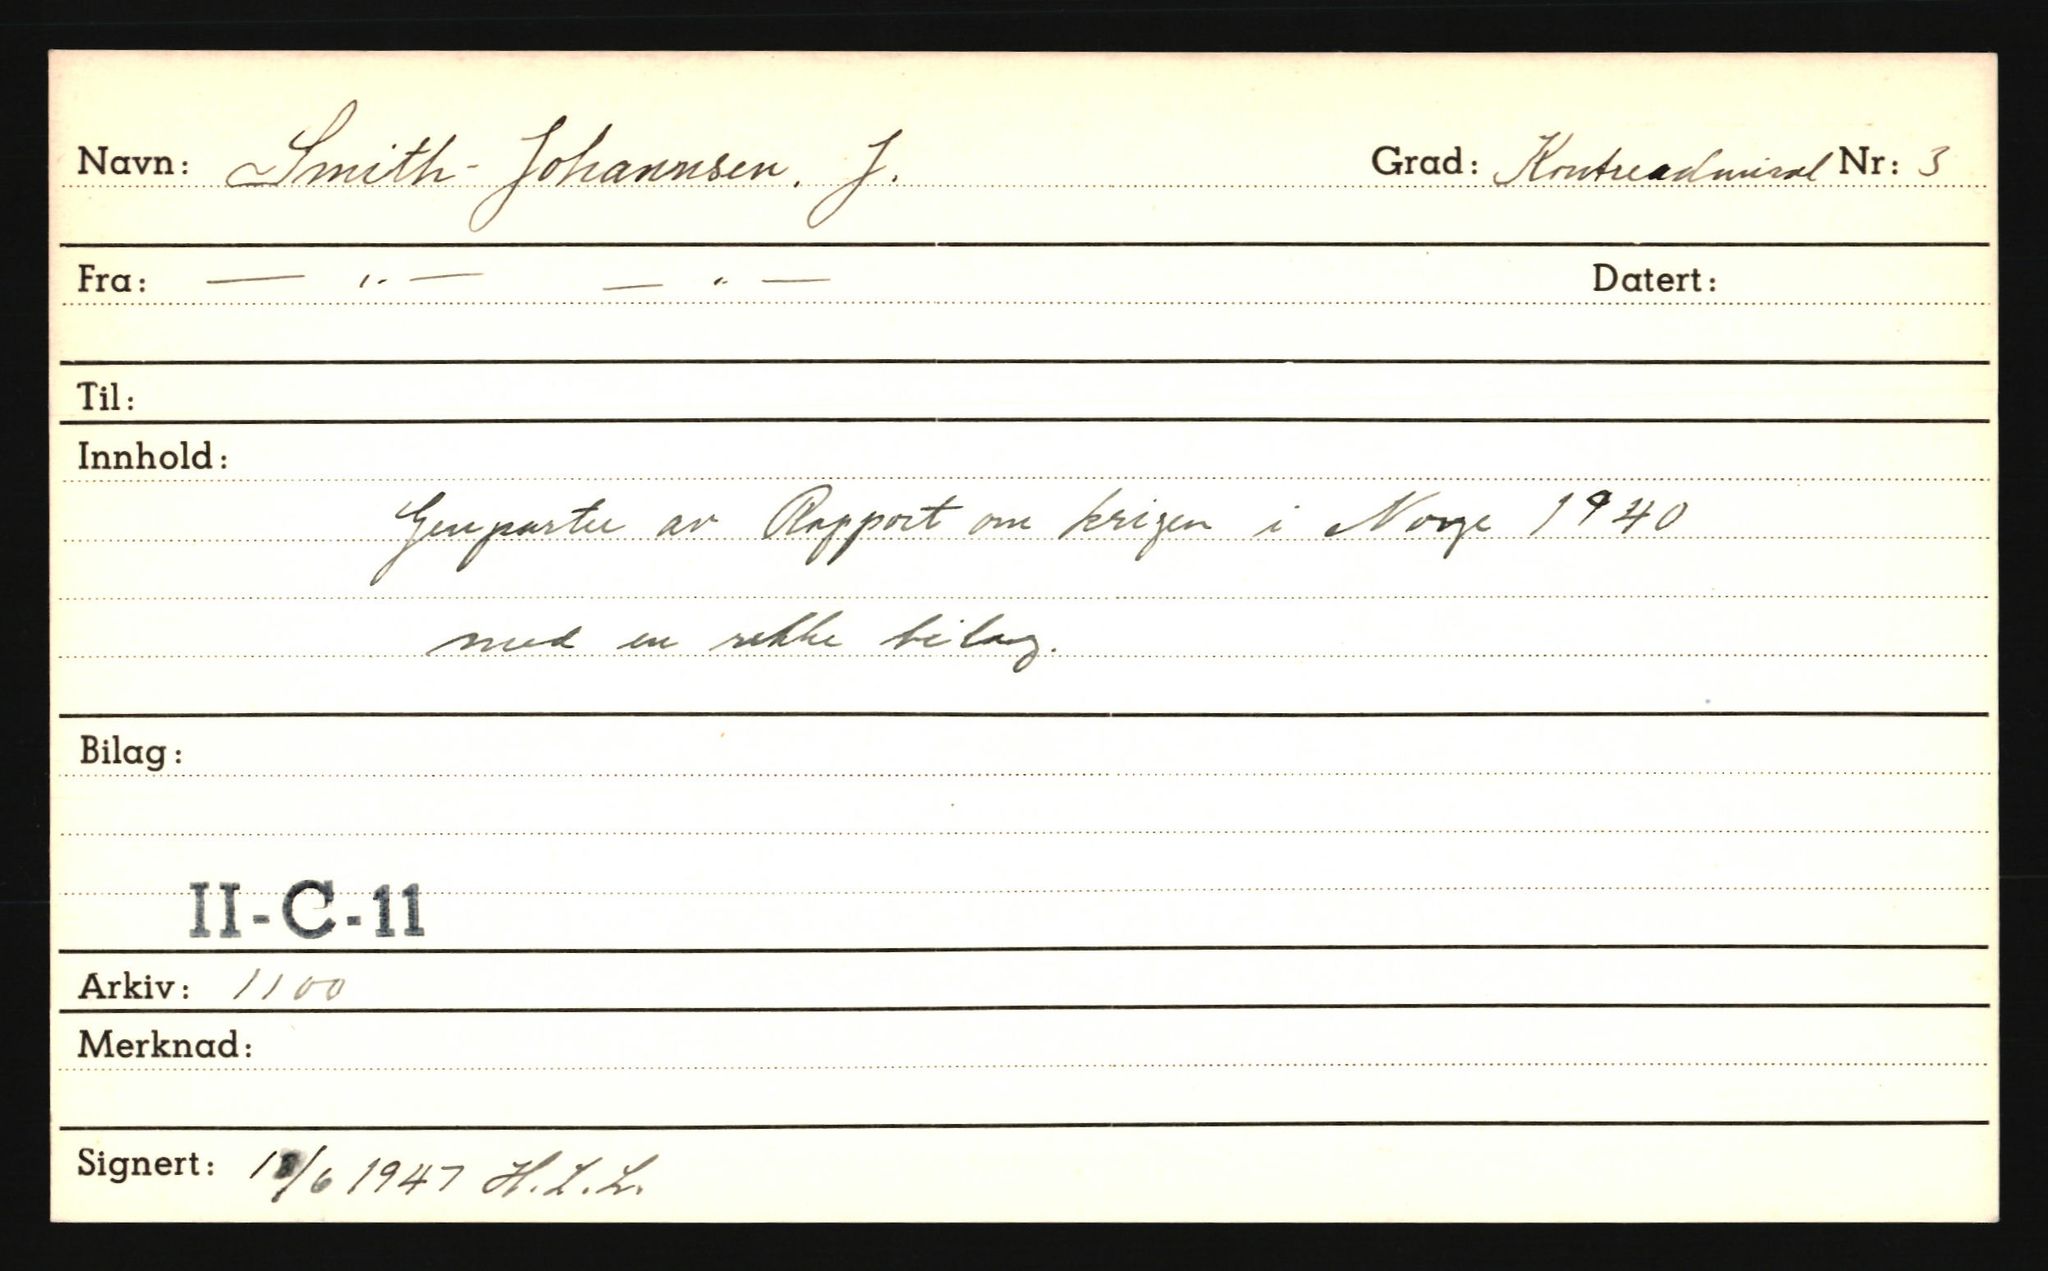 Navn: Smith-Johannsen, J. Grad: Kontreadmiral Nr: 3
Fra: — " — — " — Datert:
Til:
Innhold:
Genparter av Rapport om krigen i Norge 1940
med en rekke bilag.
Bilag:
II-C-11
Arkiv: 1100
Merknad:
Signert: 18/6 1947 H.L.L.